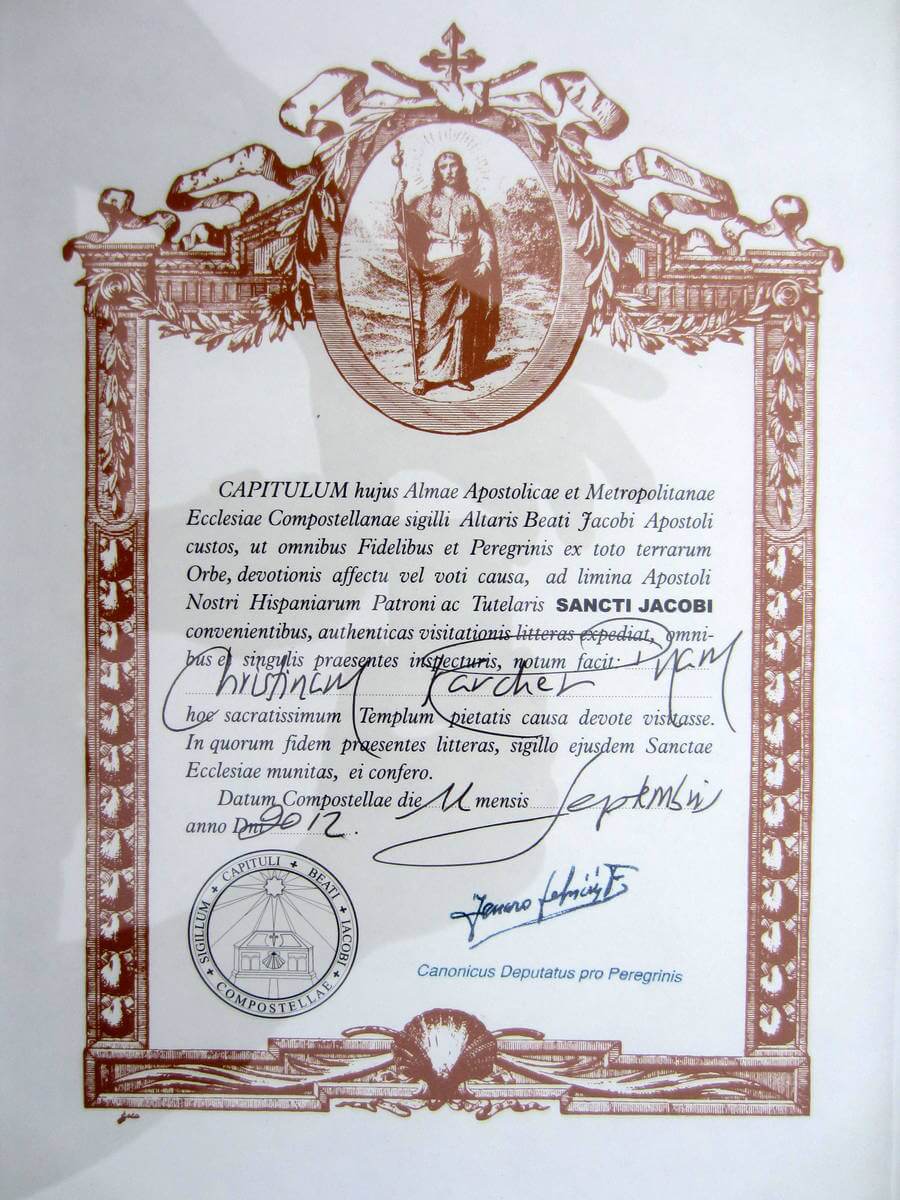 CAPITULUM hujus Almae Apostolicae et Metropolitanae
Ecclesiae Compostellanae sigilli Altaris Beati Jacobi Apostoli
custos, ut omnibus Fidelibus et Peregrinis ex toto terrarum
Orbe, devotionis affectu vel voti causa, ad limina Apostoli
Nostri Hispaniarum Patroni ac Tutelaris SANCTI JACOBI
convenientibus, authenticas visitationis litteras expediat, omni-
bus et singulis praesentes inspecturis, notum facit:
Christinam Karcher
hoc sacratissimum Templum pietatis causa devote visitasse.
In quorum fidem praesentes litteras, sigillo ejusdem Sanctae
Ecclesiae munitas, ei confero.
Datum Compostellae die 11 mensis Septembris
anno Dni 2012.
SIGILLUM + CAPITULI + BEATI + IACOBI + COMPOSTELLAE +
Canonicus Deputatus pro Peregrinis